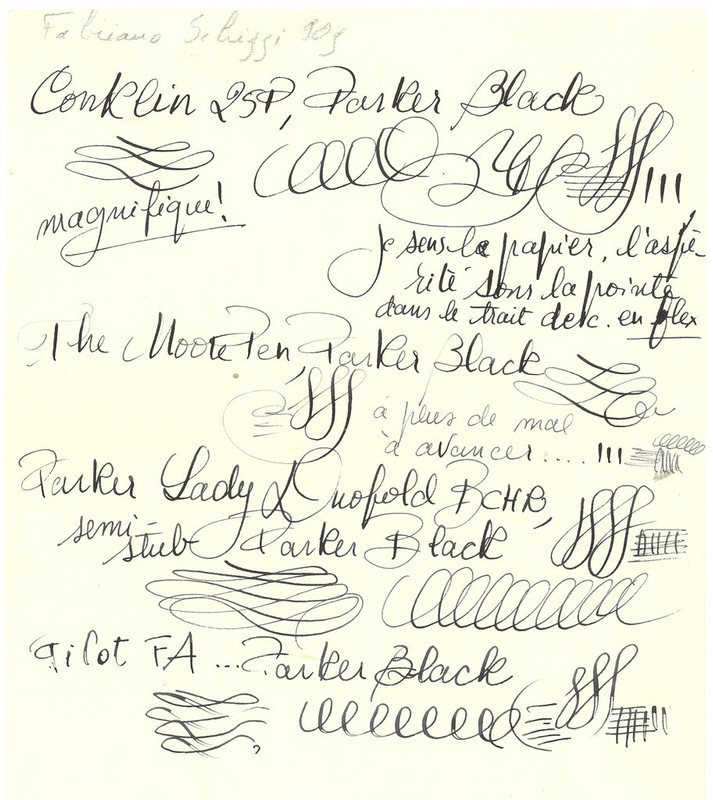 Fabriano Schizzi 90g
Conklin 25P, Parker Black
magnifique!
je sens la papier, l'aspé-
rité sons la pointe
dans le trait desc. en flex
The Moore Pen, Parker Black
à plus de mal
à avancer....
Parker Lady Duofold BCHR,
semi-
stub Parker Black
Pilot FA ... Parker Black